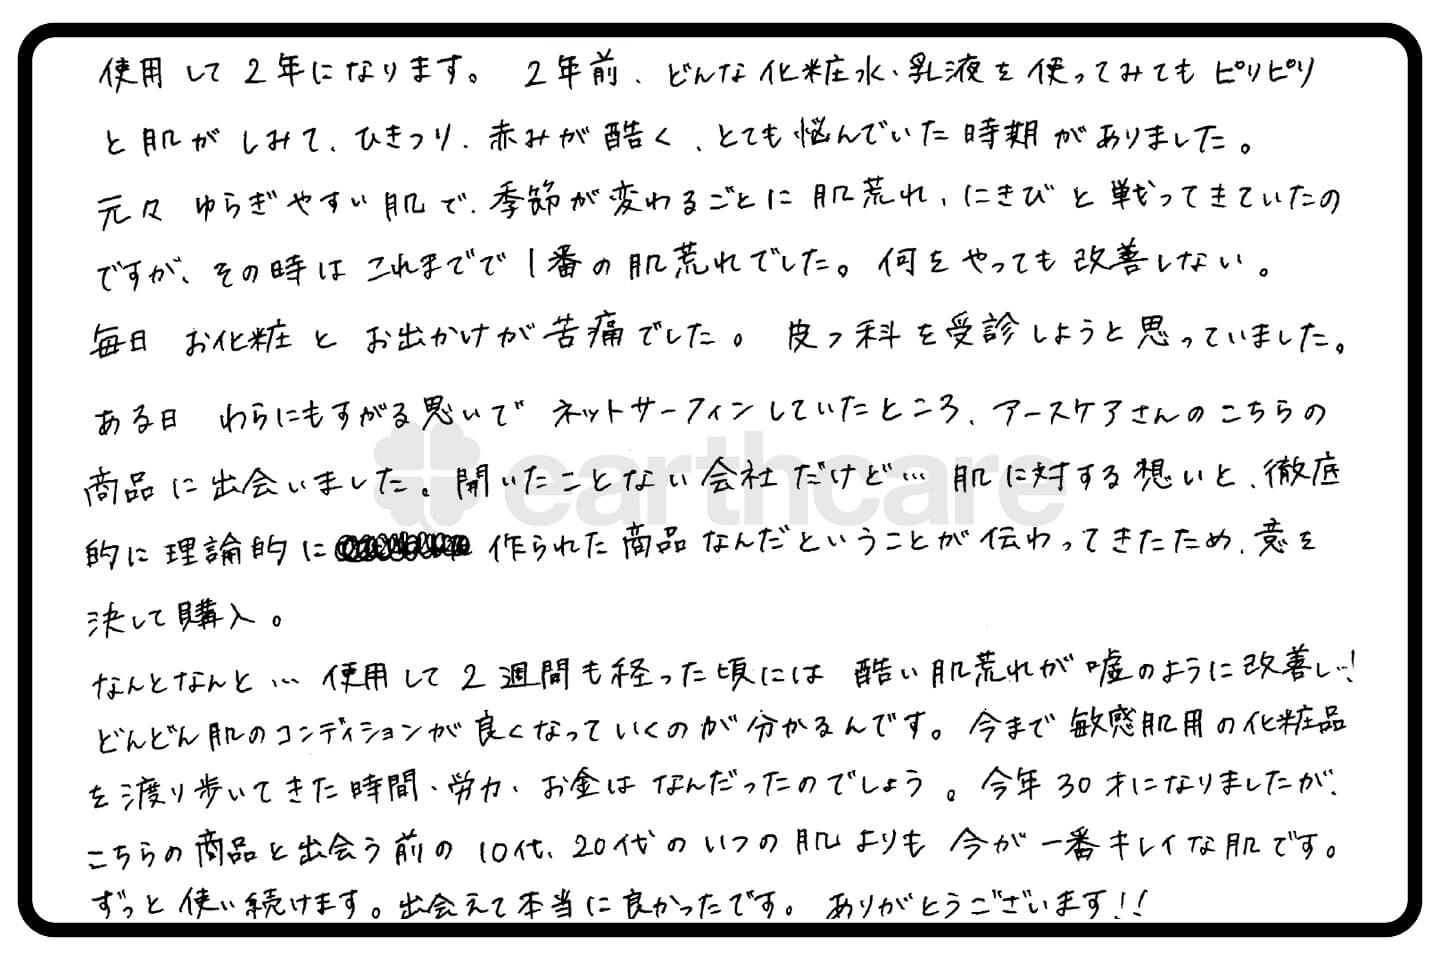 使用して2年になります。 2年前、どんな化粧水・乳液を使ってみてもピリピリ
と肌がしみて、ひきつり、赤みが酷く、とても悩んでいた時期がありました。
元々ゆらぎやすい肌で、季節が変わるごとに肌荒れ、にきびと戦ってきていたの
ですが、その時はこれまでで1番の肌荒れでした。何をやっても改善しない。
毎日 お化粧とお出かけが苦痛でした。 皮フ科を受診しようと思っていました。
ある日 わらにもすがる思いでネットサーフィンしていたところ、アースケアさんのこちらの
商品に出会いました。聞いたことない会社だけど… 肌に対する想いと、徹底
的に理論的に 作られた商品なんだということが伝わってきたため、意を
決して購入。
なんとなんと… 使用して2週間も経った頃には 酷い肌荒れが嘘のように改善し…!
どんどん肌のコンディションが良くなっていくのが分かるんです。今まで敏感肌用の化粧品
を渡り歩いてきた時間・労力・お金はなんだったのでしょう。今年30才になりましたが、
こちらの商品と出会う前の10代、20代のいつの肌よりも今が一番キレイな肌です。
ずっと使い続けます。出会えて本当に良かったです。ありがとうございます!!
earthcare